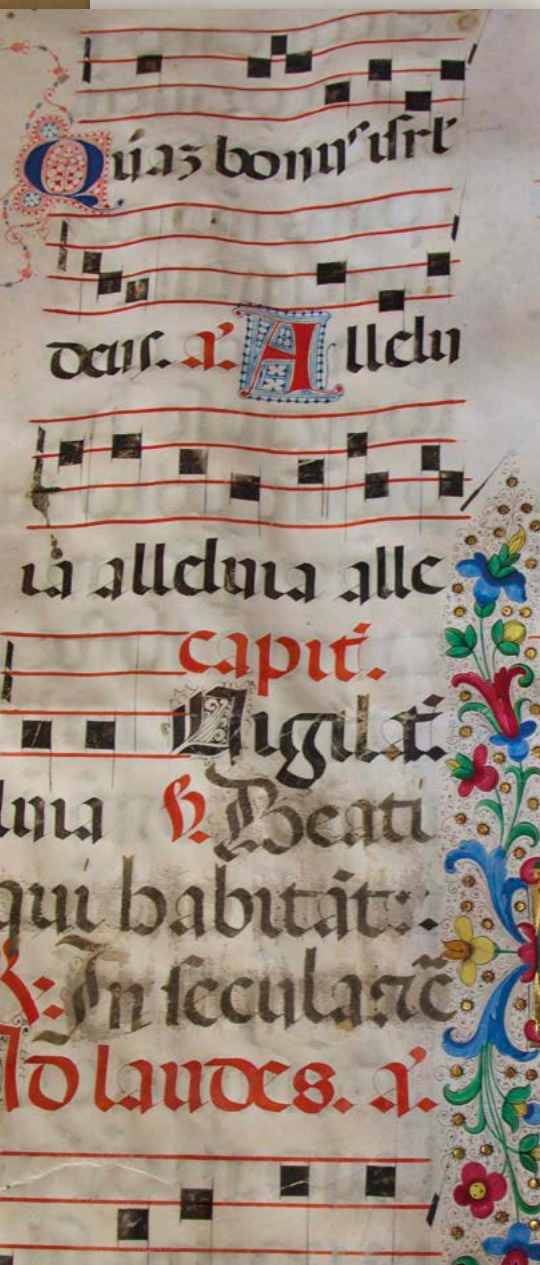 Quaz bonus isrl
deus. a. Allelu
ia alleluia alle
capit.
Vigilat.
luia R. Beati
qui habitāt:.
In secula sc̄
Ad laudes. a.